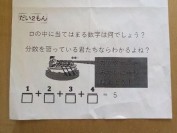 だい2もん
口の中に当てはまる数字は何でしょう？
分数を習っている君たちならわかるよね？
1 2 3 4
□ + □ + □ + □ = 5